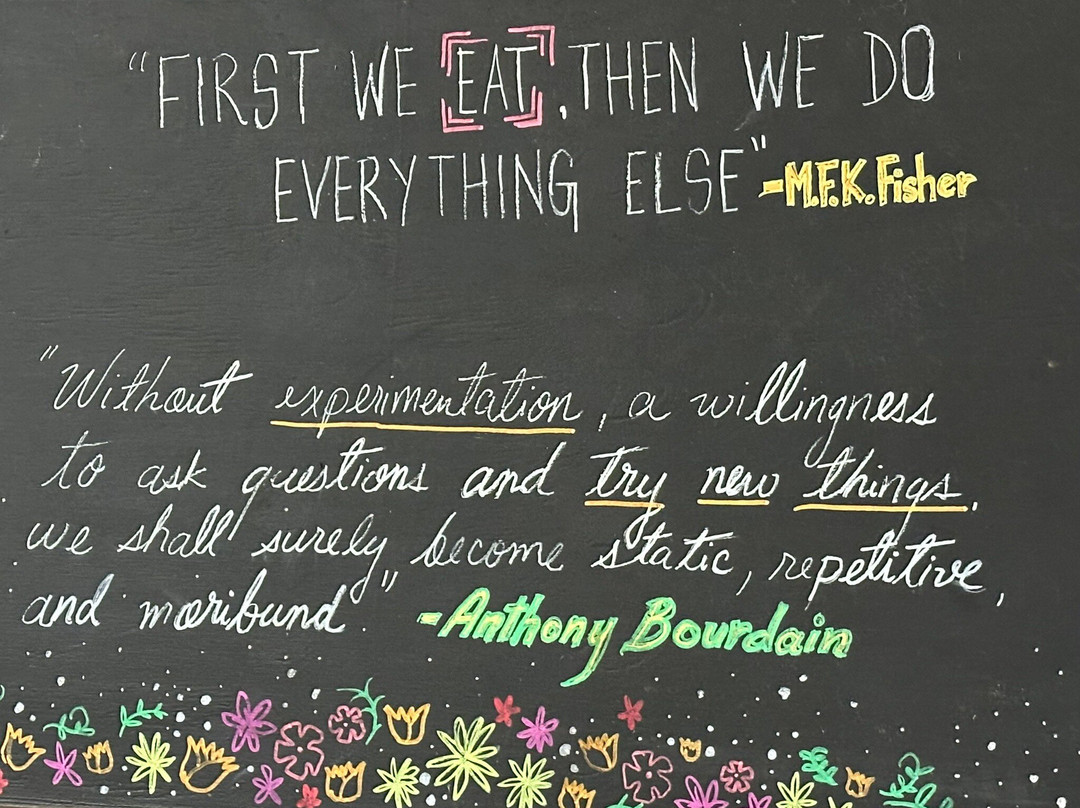 "FIRST WE EAT, THEN WE DO
EVERYTHING ELSE" -M.F.K. Fisher
"Without experimentation, a willingness
to ask questions and try new things,
we shall surely become static, repetitive,
and moribund." -Anthony Bourdain